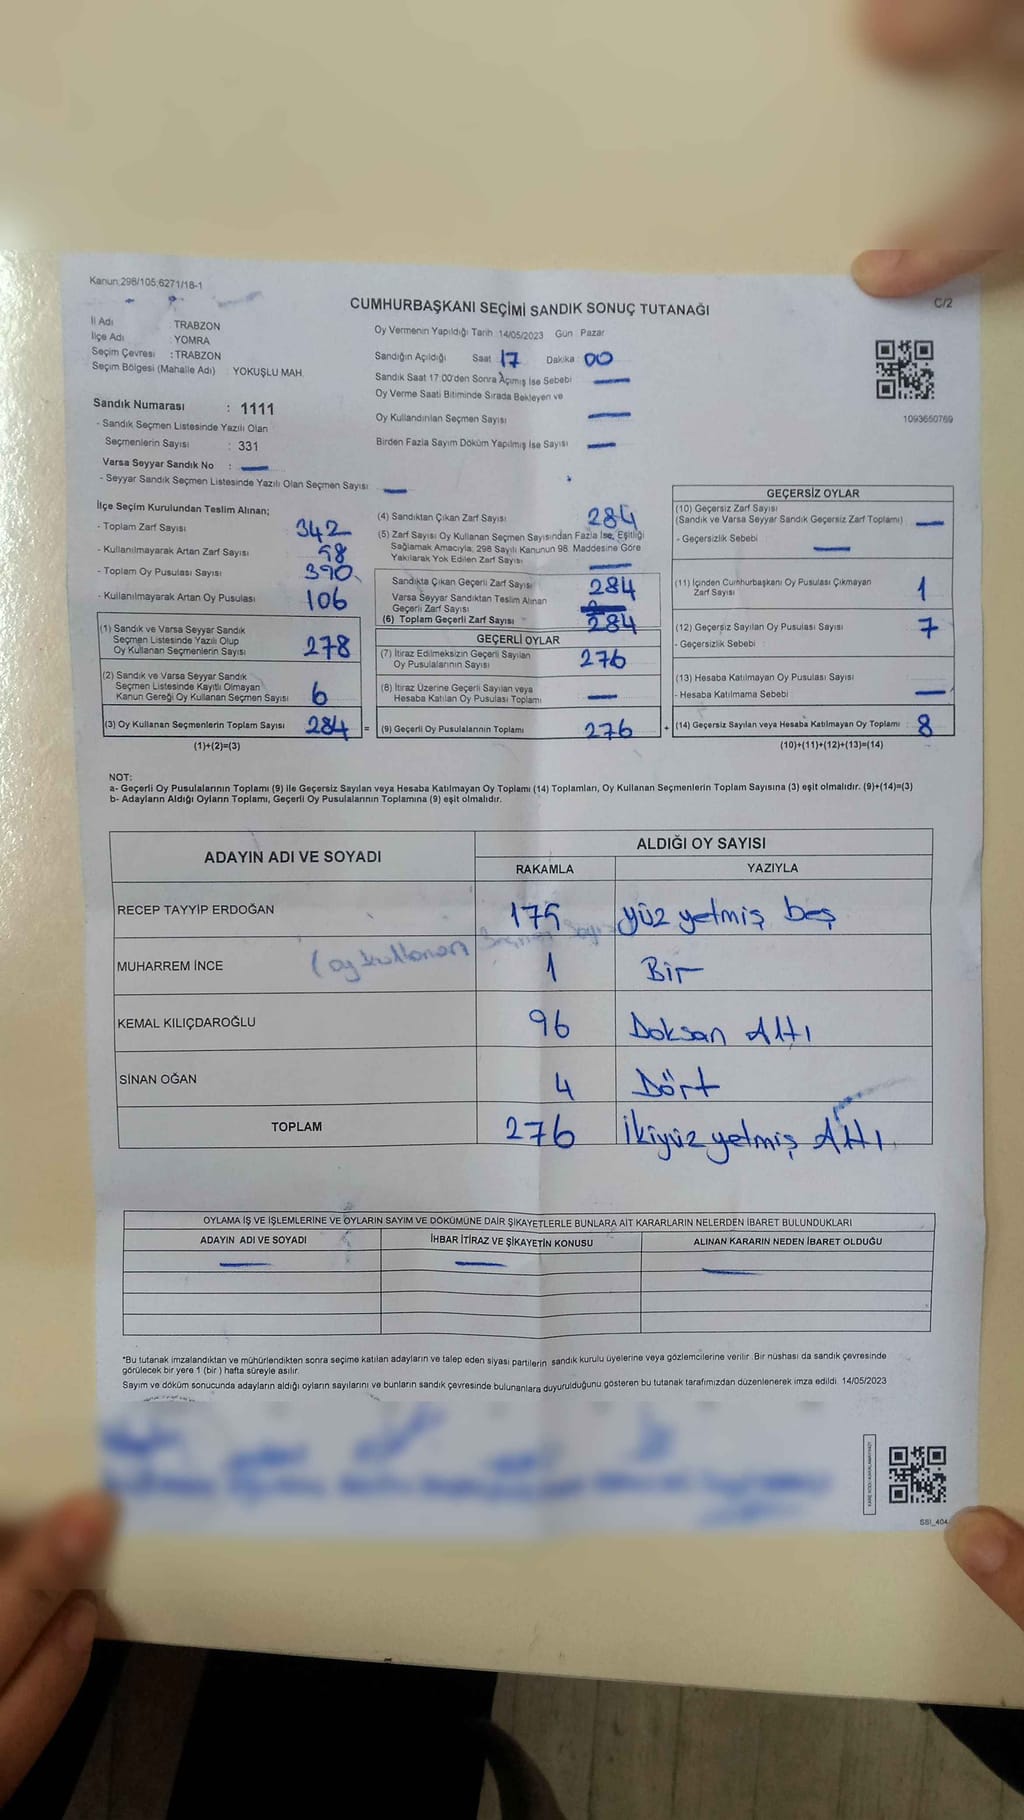 Kanun:298/105;6271/18-1
CUMHURBAŞKANI SEÇİMİ SANDIK SONUÇ TUTANAĞI
C/2
İl Adı : TRABZON
İlçe Adı : YOMRA
Seçim Çevresi : TRABZON
Seçim Bölgesi (Mahalle Adı) : YOKUŞLU MAH.
Sandık Numarası : 1111
- Sandık Seçmen Listesinde Yazılı Olan
Seçmenlerin Sayısı : 331
Varsa Seyyar Sandık No : —
- Seyyar Sandık Seçmen Listesinde Yazılı Olan Seçmen Sayısı —
Oy Vermenin Yapıldığı Tarih 14/05/2023 Gün Pazar
Sandığın Açıldığı Saat 17 Dakika : 00
Sandık Saat 17:00'den Sonra Açımış İse Sebebi —
Oy Verme Saati Bitiminde Sırada Bekleyen ve
Oy Kullandırılan Seçmen Sayısı —
Birden Fazla Sayım Döküm Yapılmış İse Sayısı —
1093650769
İlçe Seçim Kurulundan Teslim Alınan;
- Toplam Zarf Sayısı 342
- Kullanılmayarak Artan Zarf Sayısı 58
- Toplam Oy Pusulası Sayısı 390
- Kullanılmayarak Artan Oy Pusulası 106
(1) Sandık ve Varsa Seyyar Sandık
Seçmen Listesinde Yazılı Olup
Oy Kullanan Seçmenlerin Sayısı 278
(2) Sandık ve Varsa Seyyar Sandık
Seçmen Listesinde Kayıtlı Olmayan
Kanun Gereği Oy Kullanan Seçmen Sayısı 6
(3) Oy Kullanan Seçmenlerin Toplam Sayısı 284 =
(1)+(2)=(3)
(4) Sandıktan Çıkan Zarf Sayısı 284
(5) Zarf Sayısı Oy Kullanan Seçmen Sayısından Fazla İse, Eşitliği
Sağlamak Amacıyla; 298 Sayılı Kanunun 98. Maddesine Göre
Yakılarak Yok Edilen Zarf Sayısı —
Sandıkta Çıkan Geçerli Zarf Sayısı 284
Varsa Seyyar Sandıktan Teslim Alınan
Geçerli Zarf Sayısı
(6) Toplam Geçerli Zarf Sayısı 284
GEÇERLİ OYLAR
(7) İtiraz Edilmeksizin Geçerli Sayılan
Oy Pusulalarının Sayısı 276
(8) İtiraz Üzerine Geçerli Sayılan veya
Hesaba Katılan Oy Pusulası Toplamı —
(9) Geçerli Oy Pusulalarının Toplamı 276 +
GEÇERSİZ OYLAR
(10) Geçersiz Zarf Sayısı
(Sandık ve Varsa Seyyar Sandık Geçersiz Zarf Toplamı) —
- Geçersizlik Sebebi : —
(11) İçinden Cumhurbaşkanı Oy Pusulası Çıkmayan
Zarf Sayısı 1
(12) Geçersiz Sayılan Oy Pusulası Sayısı 7
- Geçersizlik Sebebi :
(13) Hesaba Katılmayan Oy Pusulası Sayısı
- Hesaba Katılmama Sebebi : —
(14) Geçersiz Sayılan veya Hesaba Katılmayan Oy Toplamı : 8
(10)+(11)+(12)+(13)=(14)
NOT:
a- Geçerli Oy Pusulalarının Toplamı (9) ile Geçersiz Sayılan veya Hesaba Katılmayan Oy Toplamı (14) Toplamları, Oy Kullanan Seçmenlerin Toplam Sayısına (3) eşit olmalıdır. (9)+(14)=(3)
b- Adayların Aldığı Oyların Toplamı, Geçerli Oy Pusulalarının Toplamına (9) eşit olmalıdır.
ADAYIN ADI VE SOYADI ALDIĞI OY SAYISI
RAKAMLA YAZIYLA
RECEP TAYYİP ERDOĞAN 175 yüz yetmiş beş
(oy kullanan
MUHARREM İNCE 1 Bir
KEMAL KILIÇDAROĞLU 96 Doksan Altı
SİNAN OĞAN 4 Dört
TOPLAM 276 İkiyüz yetmiş Altı
OYLAMA İŞ VE İŞLEMLERİNE VE OYLARIN SAYIM VE DÖKÜMÜNE DAİR ŞİKAYETLERLE BUNLARA AİT KARARLARIN NELERDEN İBARET BULUNDUKLARI
ADAYIN ADI VE SOYADI İHBAR İTİRAZ VE ŞİKAYETİN KONUSU ALINAN KARARIN NEDEN İBARET OLDUĞU
— — —
*Bu tutanak imzalandıktan ve mühürlendikten sonra seçime katılan adayların ve talep eden siyasi partilerin sandık kurulu üyelerine veya gözlemcilerine verilir. Bir nüshası da sandık çevresinde
görülecek bir yere 1 (bir) hafta süreyle asılır.
Sayım ve döküm sonucunda adayların aldığı oyların sayılarını ve bunların sandık çevresinde bulunanlara duyurulduğunu gösteren bu tutanak tarafımızdan düzenlenerek imza edildi. 14/05/2023
SSI_404